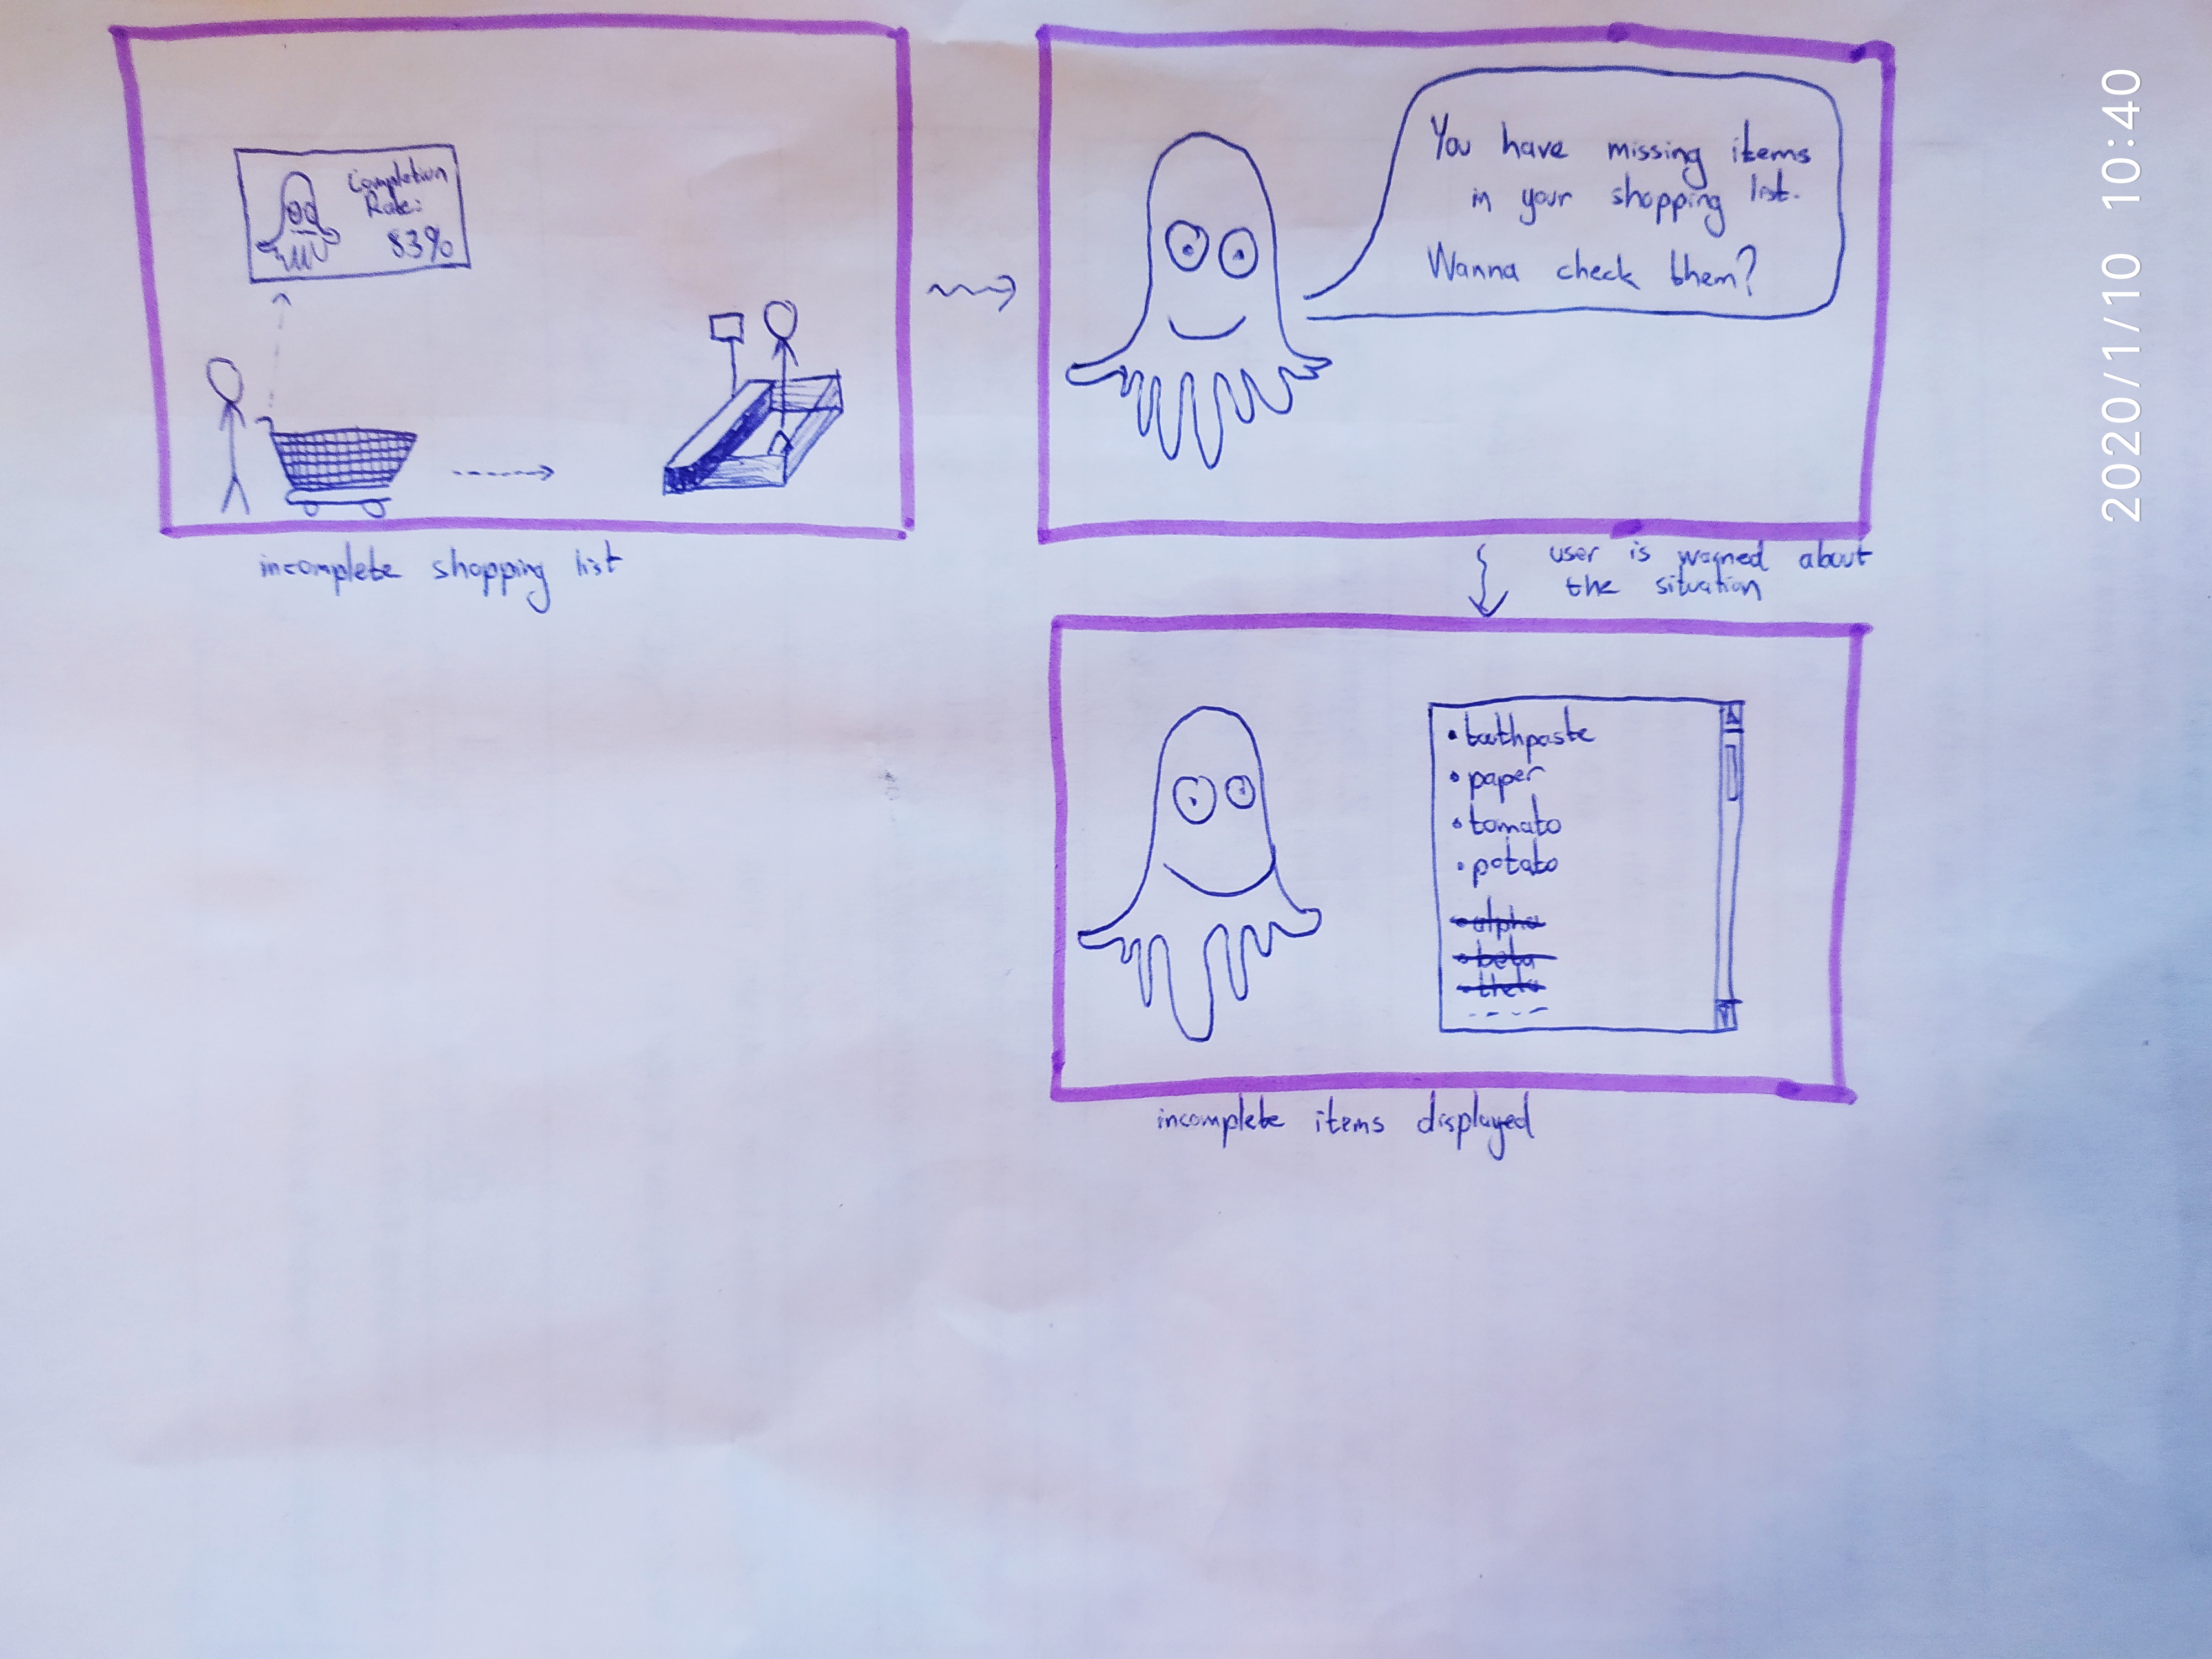 Completion
Rate:
83%
incomplete shopping list
You have missing items
in your shopping list.
Wanna check them?
user is warned about
the situation
• toothpaste
• paper
• tomato
• potato
• alpha
• beta
• theta
incomplete items displayed
2020/1/10 10:40